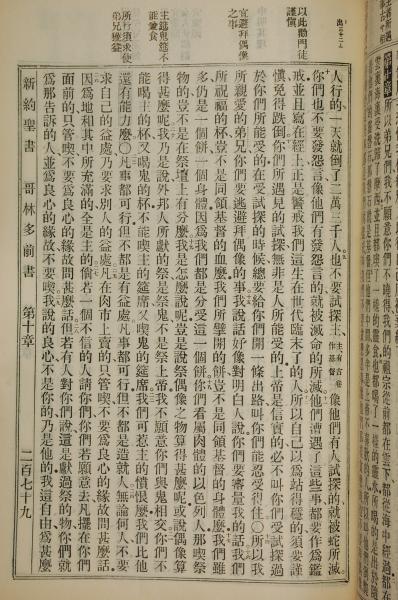 以此勸門徒
謹慎
宜避拜偶像
之事
主筵鬼筵不
能兼食
所行須求使
弟兄獲益
人行的一天就倒了二萬三千人也不要試探主主有古卷作基督像他們有人試探的就被蛇所滅
你們也不要發怨言像他們有發怨言的就被滅命的所滅他們遭遇了這些事都要作爲鑑
戒並且寫在經上正是警戒我們這生在世代臨末了的人所以自己以爲站得穩的須要謹
慎免得跌倒你們所遇見的試探無非是人所能受的上帝是信實的必不叫你們受試探過
於你們所能受的在受試探的時候總要給你們開一條出路叫你們能忍受得住○所以我
所親愛的弟兄你們要逃避拜偶像的事我說話好像對明白人說你們要審量我的話我們
所祝福的杯豈不是同領基督的血麼我們所擘開的餅豈不是同領基督的身體麼我們雖
多仍是一個餅一個身體因爲我們都是分受這一個餅你們看屬肉體的以色列人那喫祭
物的豈不是在祭壇上有分麼我是怎麼說呢豈是說祭偶像之物算得甚麼呢或說偶像算
得甚麼呢我乃是說外邦人所獻的祭是祭鬼不是祭上帝我不願意你們與鬼相交你們不
能喝主的杯又喝鬼的杯不能喫主的筵席又喫鬼的筵席我們可惹主的憤恨麼我們比他
還有能力麼○凡事都可行但不都是有益處凡事都可行但不都是造就人無論何人不要
求自己的益處乃要求別人的益處凡在肉市上賣的只管喫不要爲良心的緣故問甚麼話
因爲地和其中所充滿的全是主的倘若一個不信的人請你們你們若願意去凡擺在你們
面前的只管喫不要爲良心的緣故問甚麼話但若有人對你們說這是獻過祭的物你們就
爲那告訴的人並爲良心的緣故不要喫我說的良心不是你的乃是他的我這自由爲甚麼
新約聖書 哥林多前書 第十章 二百七十九